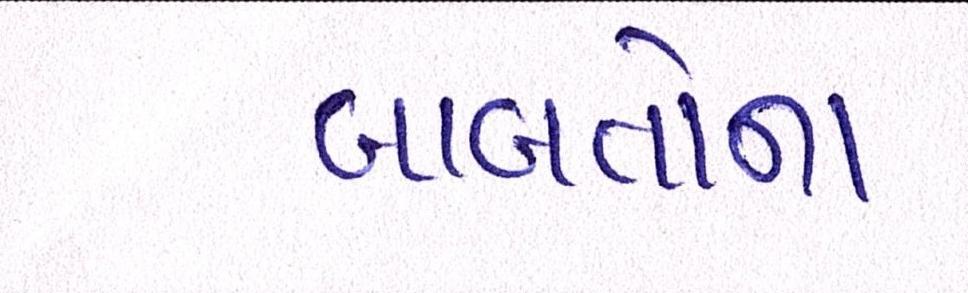 બાબતોના